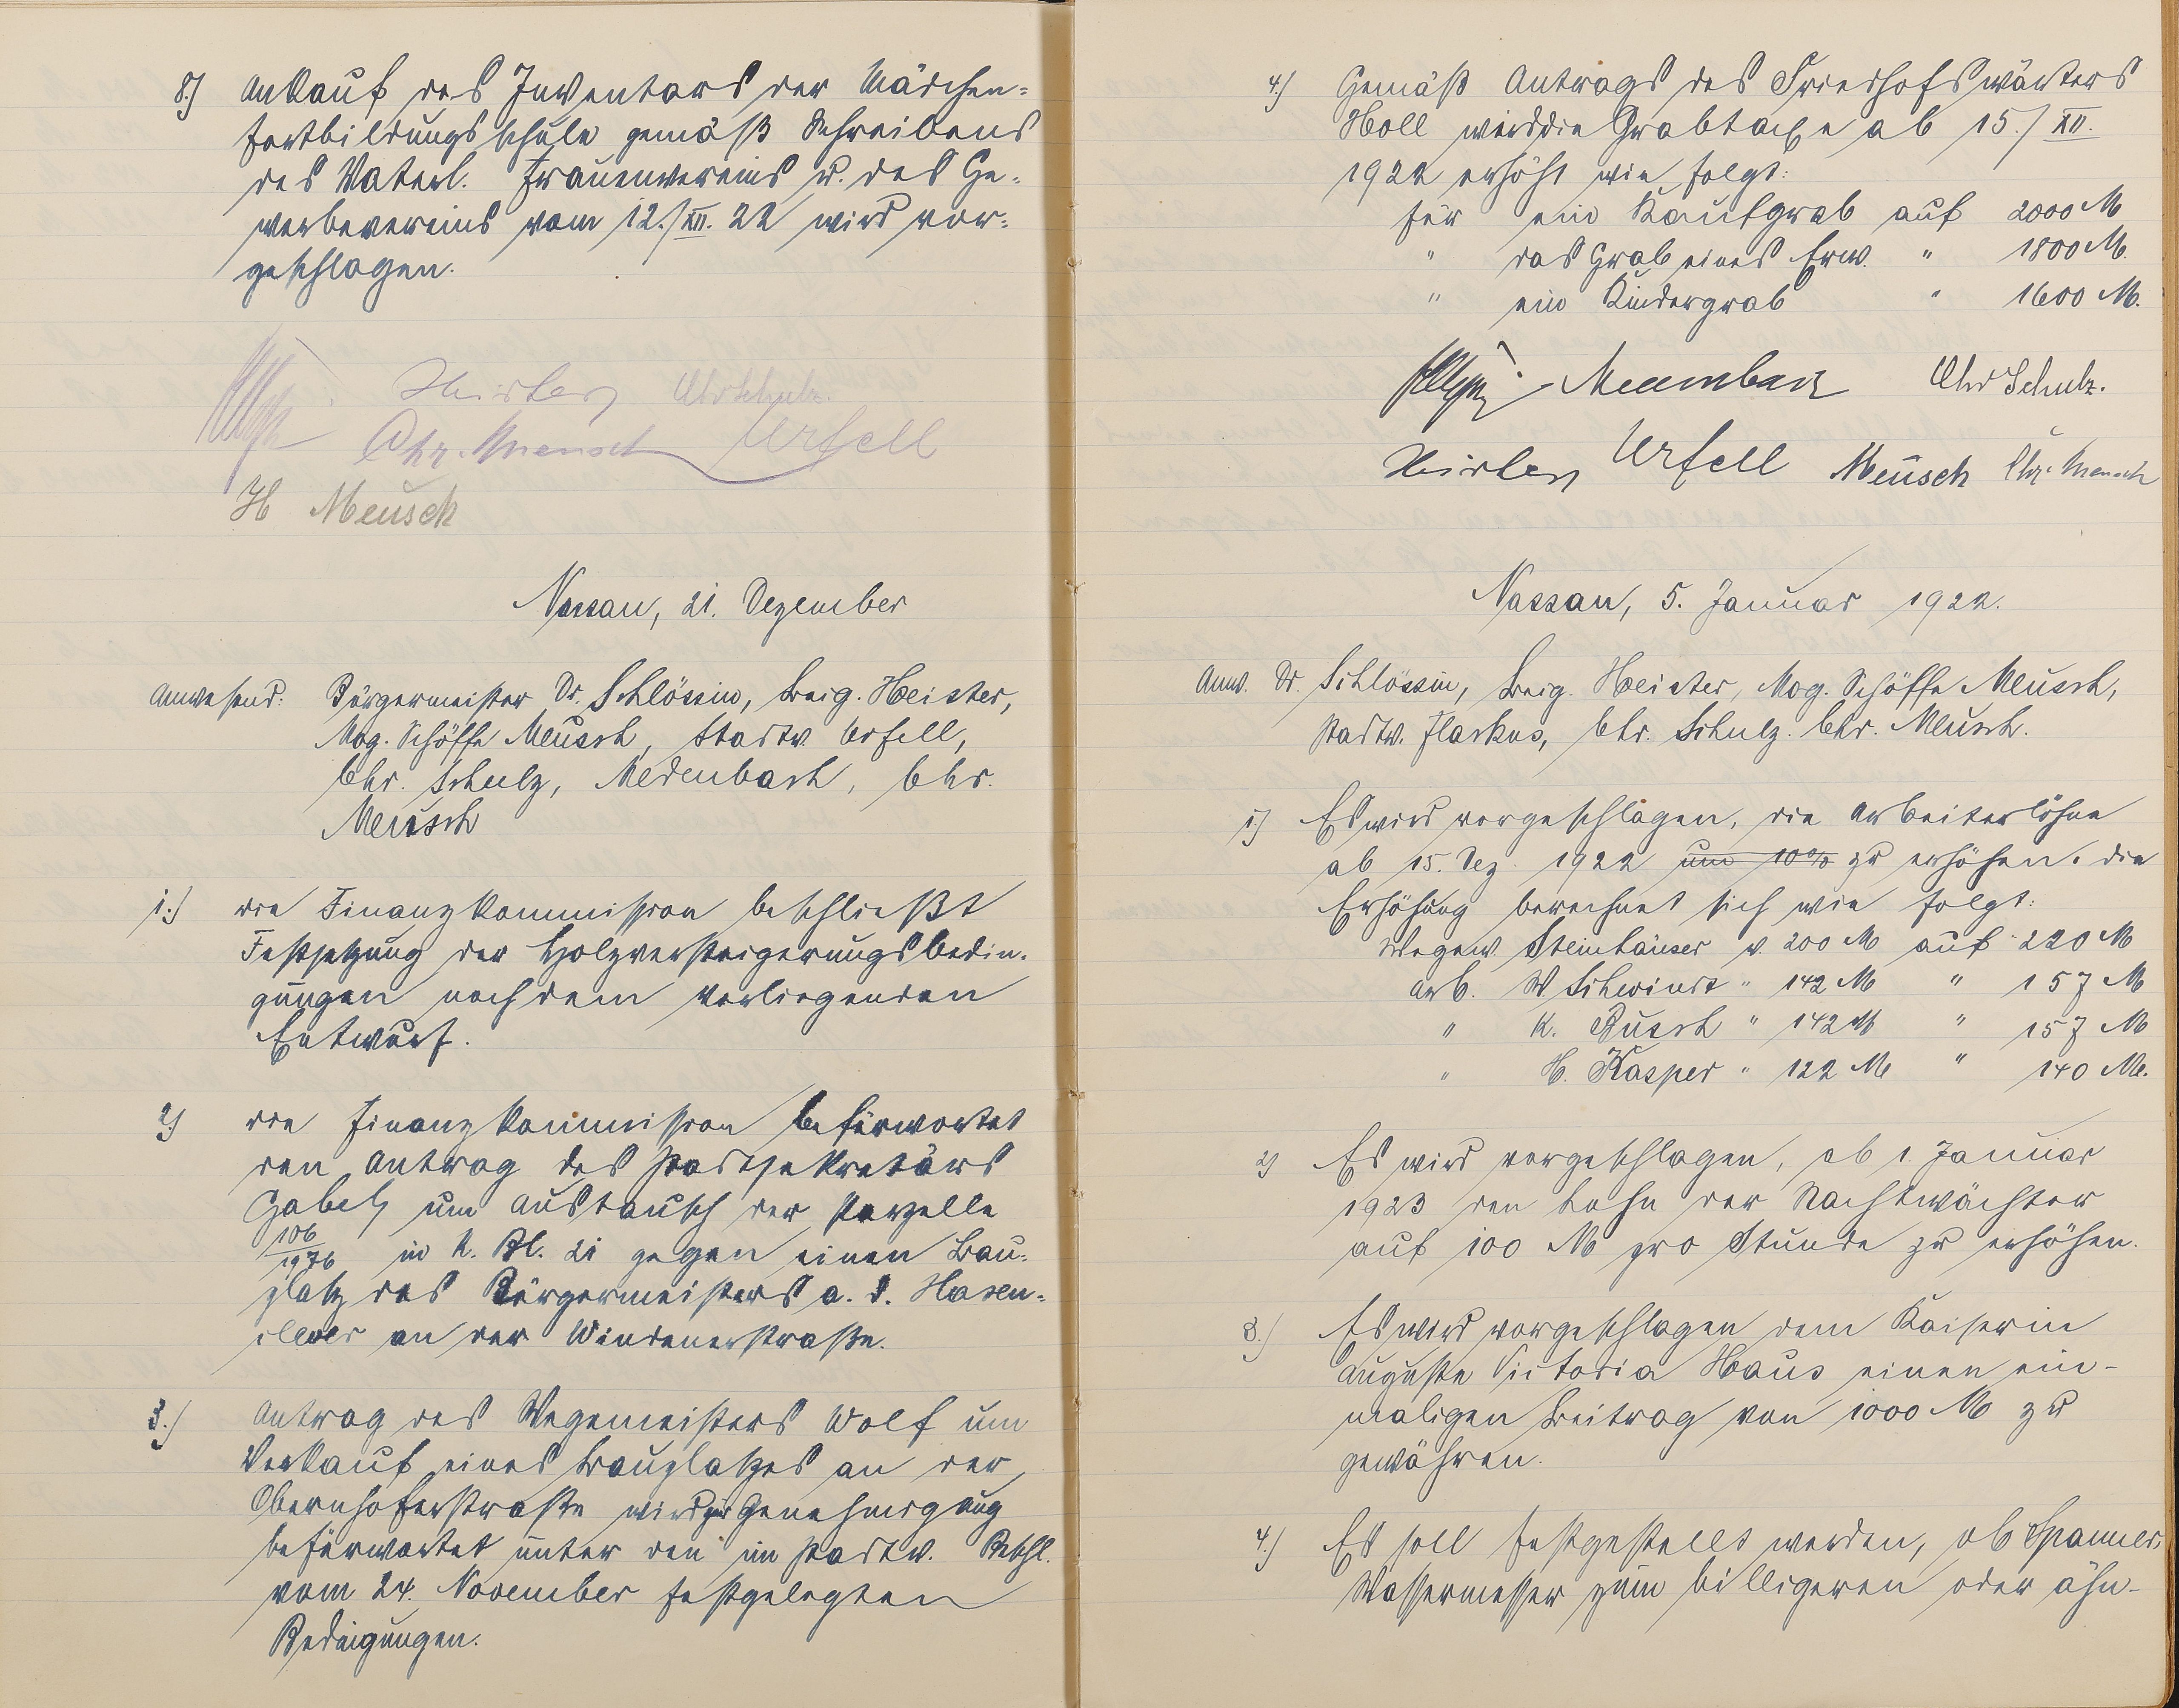 8.) Ankauf des Inventars der Mädchen=
fortbildungsschule gemäß Schreibens
des Vaterl. Frauenvereins u. des Ge=
werbevereins vom 12./XII. 22 wird vor=
geschlagen.
Heister Chr Schulz.
Chr. Meusch Urfell
H Meusch
Nassau, 21. Dezember
Anwesend: Bürgermeister Dr. Schlössin, Beig. Heister,
Mag. Schöffe Meusch, Stadtv. Urfell,
Chr. Schulz, Medenbach, Chr.
Meusch
1.) die Finanzkommission beschließt
Festsetzung der Holzversteigerungsbedin=
gungen nach dem vorliegenden
Entwurf.
2.) die Finanzkommission befürwortet
den Antrag des Stadtsekretärs
Gabel um Austausch der Parzelle
106/1976 in K. Bl. 21 gegen einen Bau=
platz des Bürgermeisters a. D. Hasen=
clever an der Windenerstraße.
3.) Antrag des Wegemeisters Wolf um
Verkauf eines Bauplatzes an der
Obernhoferstraße wird zur Genehmigung
befürwortet unter den im Stadtv. Beschl.
vom 24. November festgelegten
Bedingungen.
4.) Gemäß Antrags des Friedhofswärters
Holl wird die Grabtaxe ab 15./XII.
1922 erhöht wie folgt:
für ein Kaufgrab auf 2000 M
" das Grab eines Erw. " 1800 M.
" ein Kindergrab " 1600 M.
Chr Schulz.
Heister Urfell Meusch Chr. Meusch
Nassau, 5. Januar 1922.
Anw. Dr. Schlössin, Beig. Heister, Mag. Schöffe Meusch,
Stadtv. Flaskus, Chr. Schulz. Chr. Meusch.
1.) Es wird vorgeschlagen, die Arbeiterlöhne
ab 15. Dez. 1922 um 10% zu erhöhen. die
Erhöhung berechnet sich wie folgt:
Wegew. Steinhäuser v. 200 M auf 220 M
Arb. W Schwindt " 142 M " 157 M
" K. Busch " 142 M " 157 M
" H. Kasper " 122 M " 140 M.
2) Es wird vorgeschlagen, ab 1. Januar
1923 den Lohn der Nachtwächter
auf 100 M pro Stunde zu erhöhen.
3.) Es wird vorgeschlagen dem Kaiserin
Auguste Victoria Haus einen ein-
maligen Beitrag von 1000 M zu
gewähren.
4.) Es soll festgestellt werden, ob Spanner,
Wassermesser zum billigeren oder ähn-